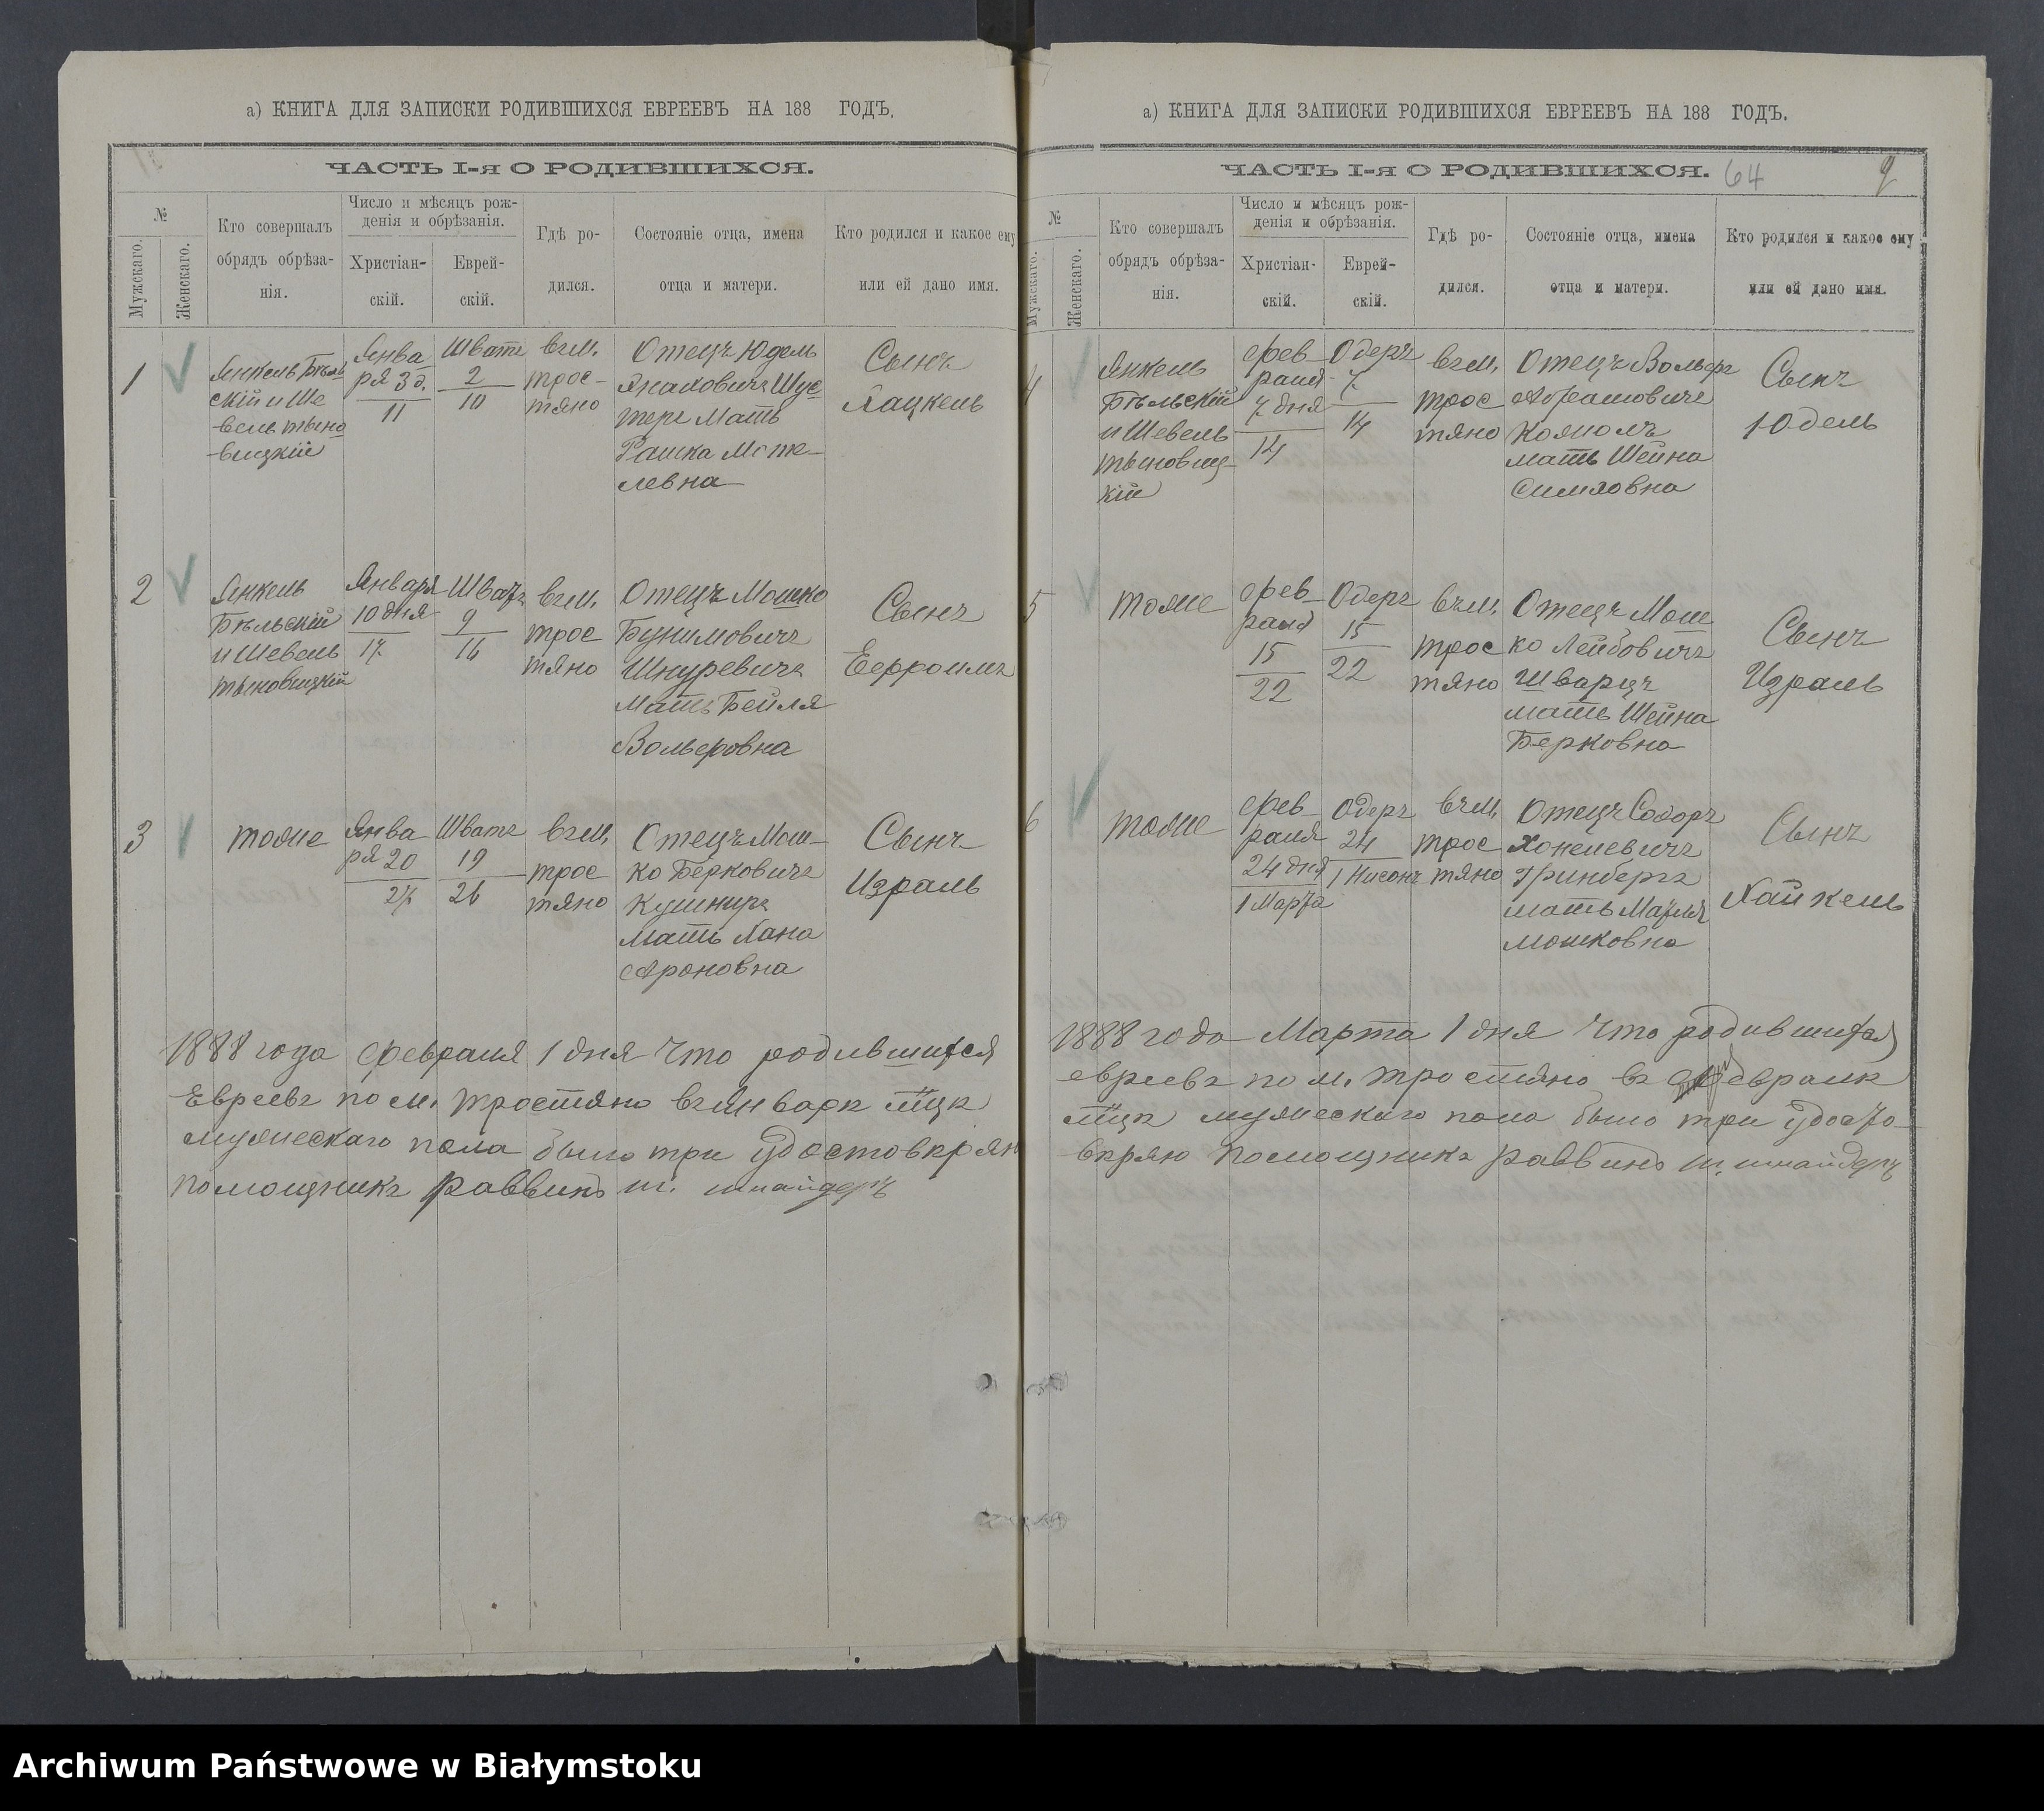 а) КНИГА ДЛЯ ЗАПИСКИ РОДИВШИХСЯ ЕВРЕЕВЪ НА 188 ГОДЪ.
ЧАСТЬ I-я О РОДИВШИХСЯ.
№
Мужскаго.
Женскаго.
Кто совершалъ
обрядъ обрѣза-
нія.
Число и мѣсяцъ рож-
денія и обрѣзанія.
Христіан-
скій.
Еврей-
скій.
Гдѣ ро-
дился.
Состояніе отца, имена
отца и матери.
Кто родился и какое ему
или ей дано имя.
1
Янкель Бѣль
скій и Ше
вель тыно
вицкій
Янва
ря 3 д.
11
Шватъ
2
10
въ м.
трос-
тяно
Отецъ Юдель
Янкловичъ Шус
теръ Мать
Рашка Моте-
левна
Сынъ
Хацкель
2
Янкель
Бѣльскій
и Шевель
тыновицкій
Января
10 дня
17
Шватъ
9
16
въ м.
трос
тяно
Отецъ Мошко
Бунимовичъ
Шнуревичъ
Мать Бейля
Вольфовна
Сынъ
Ефроимъ
3
тоже
Янва
ря 20
27
Шватъ
19
26
въ м.
трос
тяно
Отецъ Мош-
ко Берковичъ
Кушниръ
Мать Хана
Ароновна
Сынъ
Израль
1888 года февраля 1 дня что родившихся
Евреевъ по м. тростяно въ Январѣ м-цѣ
мужескаго пола было три удостовѣряю
помощникъ раввина Ш. шнайдеръ
а) КНИГА ДЛЯ ЗАПИСКИ РОДИВШИХСЯ ЕВРЕЕВЪ НА 188 ГОДЪ.
ЧАСТЬ I-я О РОДИВШИХСЯ.
64
9
№
Мужскаго.
Женскаго.
Кто совершалъ
обрядъ обрѣза-
нія.
Число и мѣсяцъ рож-
денія и обрѣзанія.
Христіан-
скій.
Еврей-
скій.
Гдѣ ро-
дился.
Состояніе отца, имена
отца и матери.
Кто родился и какое ему
или ей дано имя.
4
Янкель
Бѣльскій
и Шевель
тыновиц-
кій
фев
раля
7 дня
14
Одеръ
7
14
въ м.
трос
тяно
Отецъ Вольфъ
Абрамовичъ
мать Шейна
Симховна
Сынъ
Юдель
5
тоже
фев
раля
15
22
Одеръ
15
22
въ м.
трос
тяно
Отецъ Мош
ко Лейбовичъ
Шварцъ
мать Шейна
Берковна
Сынъ
Израль
6
тоже
фев
раля
24 дня
1 Марта
Одеръ
24
1 Нисонъ
въ м.
трос
тяно
Отецъ
Хонелевичъ
Гринбергъ
мать
Мошковна
Сынъ
Хайкель
1888 года Марта 1 дня что родившихся
евреевъ по м. тростяно въ февралѣ
м-цѣ мужескаго пола было три удосто-
вѣряю помощникъ раввина Ш. шнайдеръ
Archiwum Państwowe w Białymstoku